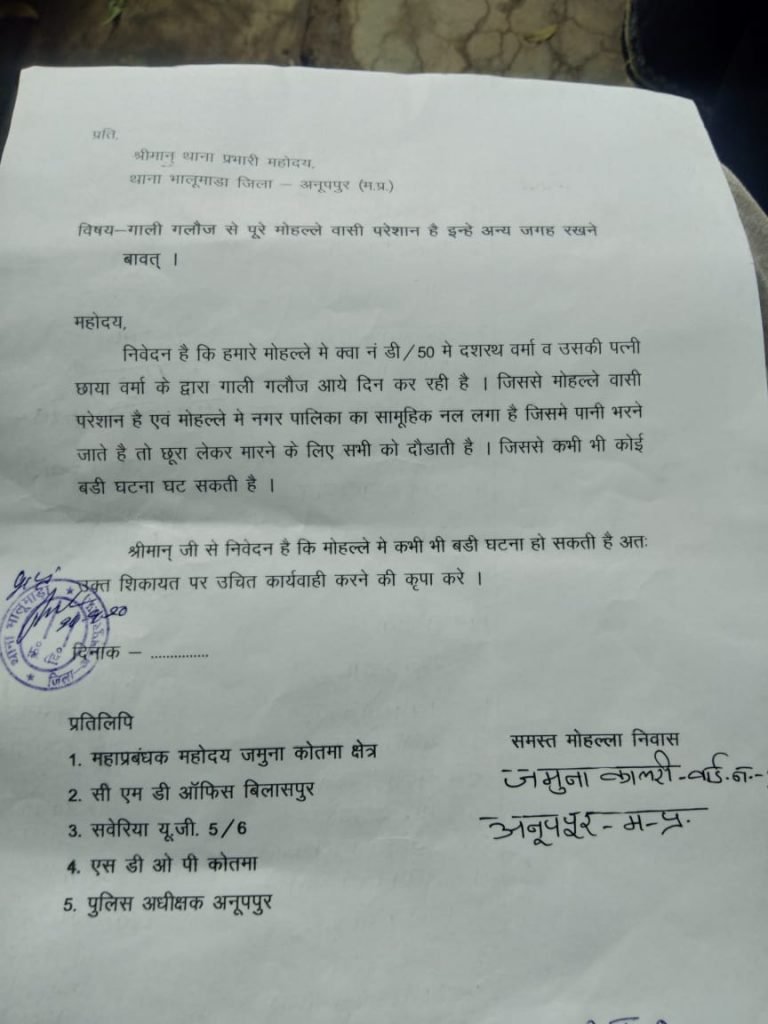 प्रति,
श्रीमान् थाना प्रभारी महोदय,
थाना भालूमाडा जिला – अनूपपुर (म.प्र.)
विषय–गाली गलौज से पूरे मोहल्ले वासी परेशान है इन्हे अन्य जगह रखने
बावत् ।
महोदय,
निवेदन है कि हमारे मोहल्ले मे क्वा नं डी/50 मे दशरथ वर्मा व उसकी पत्नी
छाया वर्मा के द्वारा गाली गलौज आये दिन कर रही है । जिससे मोहल्ले वासी
परेशान है एवं मोहल्ले मे नगर पालिका का सामूहिक नल लगा है जिसमे पानी भरने
जाते है तो छूरा लेकर मारने के लिए सभी को दौडाती है । जिससे कभी भी कोई
बडी घटना घट सकती है ।
श्रीमान् जी से निवेदन है कि मोहल्ले मे कभी भी बडी घटना हो सकती है अतः
उक्त शिकायत पर उचित कार्यवाही करने की कृपा करे ।
थाना भालूमाडा
क्र०
दि०
जिला
दिनांक – ...............
प्रतिलिपि
1. महाप्रबंधक महोदय जमुना कोतमा क्षेत्र
2. सी एम डी ऑफिस बिलासपुर
3. सवेरिया यू.जी. 5/6
4. एस डी ओ पी कोतमा
5. पुलिस अधीक्षक अनूपपुर
समस्त मोहल्ला निवास
जमुना कालरी-वार्ड.न.-
अनूपपुर-म-प्र.